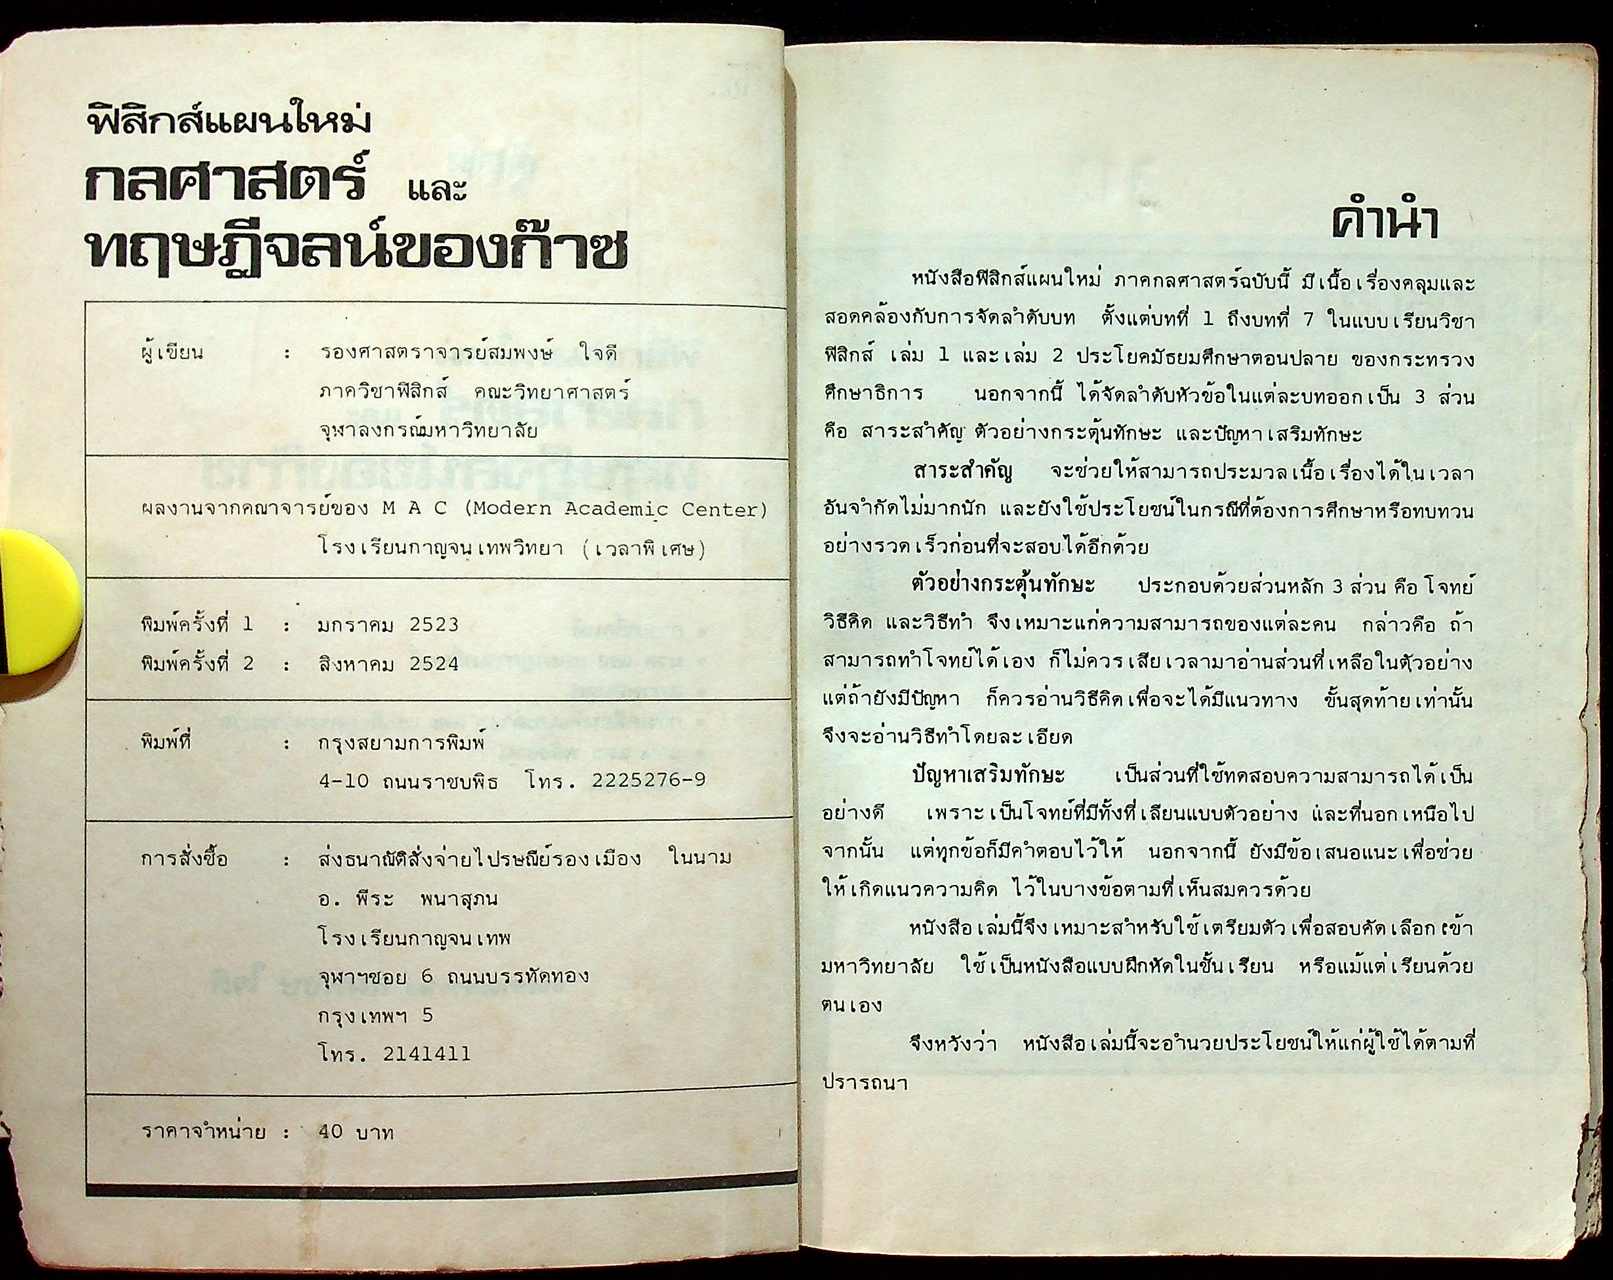 ฟิสิกส์แผนใหม่
กลศาสตร์ และ
ทฤษฎีจลน์ของก๊าซ
ผู้เขียน : รองศาสตราจารย์สมพงษ์ ใจดี
ภาควิชาฟิสิกส์ คณะวิทยาศาสตร์
จุฬาลงกรณ์มหาวิทยาลัย
ผลงานจากคณาจารย์ของ M A C (Modern Academic Center)
โรงเรียนกาญจนเทพวิทยา (เวลาพิเศษ)
พิมพ์ครั้งที่ 1 : มกราคม 2523
พิมพ์ครั้งที่ 2 : สิงหาคม 2524
พิมพ์ที่ : กรุงสยามการพิมพ์
4-10 ถนนราชบพิธ โทร. 2225276-9
การสั่งซื้อ : ส่งธนาณัติสั่งจ่ายไปรษณีย์รองเมือง ในนาม
อ. พีระ พนาสุภน
โรงเรียนกาญจนเทพ
จุฬาฯซอย 6 ถนนบรรทัดทอง
กรุงเทพฯ 5
โทร. 2141411
ราคาจำหน่าย : 40 บาท
คำนำ
หนังสือฟิสิกส์แผนใหม่ ภาคกลศาสตร์ฉบับนี้ มีเนื้อเรื่องคลุมและ
สอดคล้องกับการจัดลำดับบท ตั้งแต่บทที่ 1 ถึงบทที่ 7 ในแบบเรียนวิชา
ฟิสิกส์ เล่ม 1 และเล่ม 2 ประโยคมัธยมศึกษาตอนปลาย ของกระทรวง
ศึกษาธิการ นอกจากนี้ ได้จัดลำดับหัวข้อในแต่ละบทออกเป็น 3 ส่วน
คือ สาระสำคัญ ตัวอย่างกระตุ้นทักษะ และปัญหาเสริมทักษะ
สาระสำคัญ จะช่วยให้สามารถประมวลเนื้อเรื่องได้ในเวลา
อันจำกัดไม่มากนัก และยังใช้ประโยชน์ในกรณีที่ต้องการศึกษาหรือทบทวน
อย่างรวดเร็วก่อนที่จะสอบได้อีกด้วย
ตัวอย่างกระตุ้นทักษะ ประกอบด้วยส่วนหลัก 3 ส่วน คือ โจทย์
วิธีคิด และวิธีทำ จึงเหมาะแก่ความสามารถของแต่ละคน กล่าวคือ ถ้า
สามารถทำโจทย์ได้เอง ก็ไม่ควรเสียเวลามาอ่านส่วนที่เหลือในตัวอย่าง
แต่ถ้ายังมีปัญหา ก็ควรอ่านวิธีคิดเพื่อจะได้มีแนวทาง ขั้นสุดท้ายเท่านั้น
จึงจะอ่านวิธีทำโดยละเอียด
ปัญหาเสริมทักษะ เป็นส่วนที่ใช้ทดสอบความสามารถได้เป็น
อย่างดี เพราะเป็นโจทย์ที่มีทั้งที่เลียนแบบตัวอย่าง และที่นอกเหนือไป
จากนั้น แต่ทุกข้อก็มีคำตอบไว้ให้ นอกจากนี้ ยังมีข้อเสนอแนะเพื่อช่วย
ให้เกิดแนวความคิด ไว้ในบางข้อตามที่เห็นสมควรด้วย
หนังสือเล่มนี้จึงเหมาะสำหรับใช้เตรียมตัวเพื่อสอบคัดเลือกเข้า
มหาวิทยาลัย ใช้เป็นหนังสือแบบฝึกหัดในชั้นเรียน หรือแม้แต่เรียนด้วย
ตนเอง
จึงหวังว่า หนังสือเล่มนี้จะอำนวยประโยชน์ให้แก่ผู้ใช้ได้ตามที่
ปรารถนา